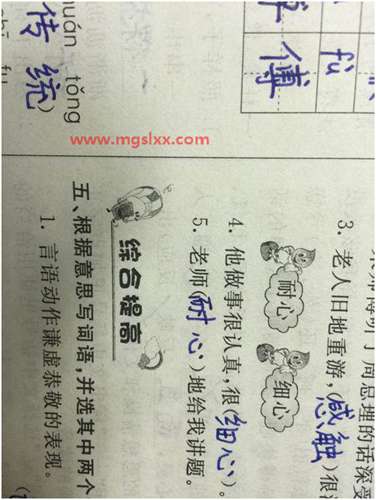 fù
傅
uán tǒng
传 统)
www.mgslxx.com
总理的话深受
3. 老人旧地重游,(感触)很
耐心 细心
4. 他做事很认真,很(细心)。
5. 老师(耐心)地给我讲题。
综合提高
五、根据意思写词语,并选其中两个
1. 言语动作谦虚恭敬的表现。(